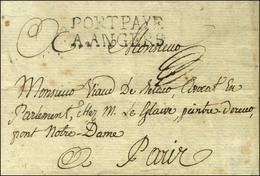 PORT PAYE
A ANGERS
Monsieur
Monsieur Viaud de Avocat En
Parlement, chez M. Le peintre
pont Notre-Dame
Paris